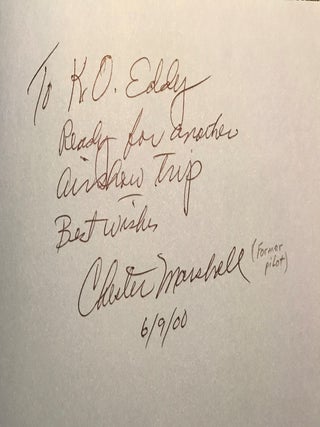 To K.O. Eddy
Ready for another
airshow Trip
Best wishes
Chester Marshall (Former pilot)
6/9/00